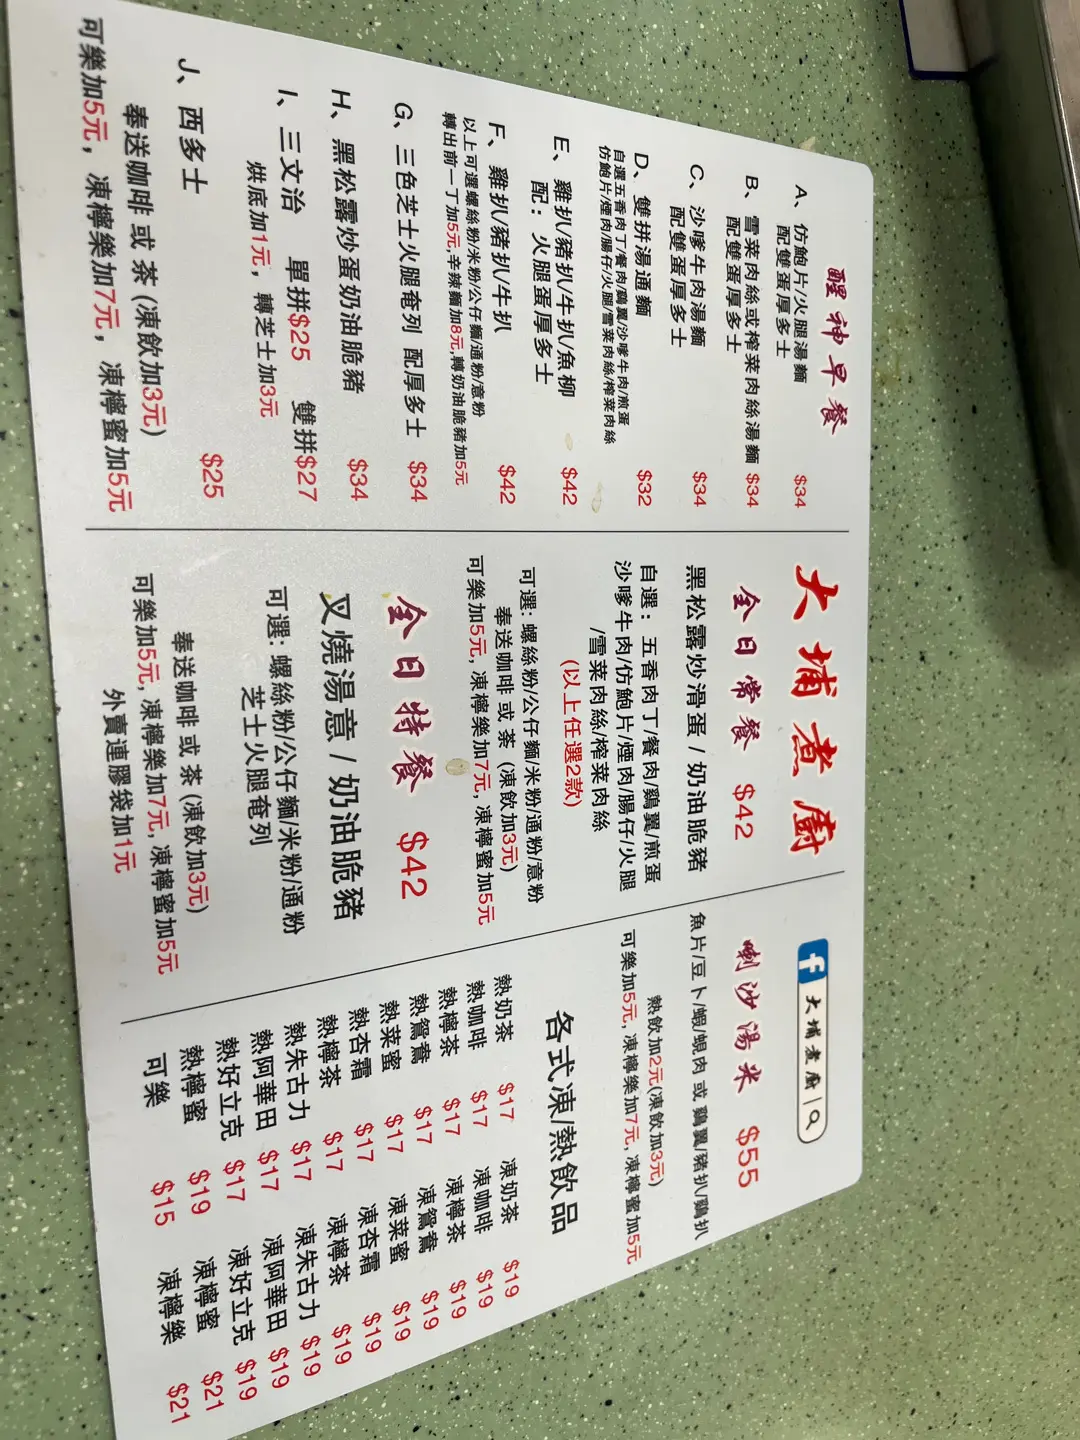 醒神早餐
A、仿鮑片/火腿湯麵
配雙蛋厚多士 $34
B、雪菜肉絲或榨菜肉絲湯麵
配雙蛋厚多士 $34
C、沙嗲牛肉湯麵
配雙蛋厚多士 $34
D、雙拼湯通麵 $32
自選五香肉丁/餐肉/鷄翼/沙嗲牛肉/煎蛋
仿鮑片/煙肉/腸仔/火腿/雪菜肉絲/榨菜肉絲
E、雞扒/豬扒/牛扒/魚柳
配：火腿蛋厚多士 $42
F、雞扒/豬扒/牛扒 $42
以上可選螺絲粉/米粉/公仔麵/通粉/意粉
轉出前一丁加5元,辛辣麵加8元,轉奶油脆豬加5元
G、三色芝士火腿奄列 配厚多士 $34
H、黑松露炒蛋奶油脆豬 $34
I、三文治 單拼$25 雙拼$27
烘底加1元，轉芝士加3元
J、西多士 $25
奉送咖啡 或 茶 (凍飲加3元)
可樂加5元，凍檸樂加7元，凍檸蜜加5元
大埔煮廚
全日常餐 $42
黑松露炒滑蛋 / 奶油脆豬
自選：五香肉丁/餐肉/鷄翼/煎蛋
沙嗲牛肉/仿鮑片/煙肉/腸仔/火腿
/雪菜肉絲/榨菜肉絲
(以上任選2款)
可選: 螺絲粉/公仔麵/米粉/通粉/意粉
奉送咖啡 或 茶 (凍飲加3元)
可樂加5元, 凍檸樂加7元, 凍檸蜜加5元
全日特餐 $42
叉燒湯意 / 奶油脆豬
可選: 螺絲粉/公仔麵/米粉/通粉
芝士火腿奄列
奉送咖啡 或 茶 (凍飲加3元)
可樂加5元, 凍檸樂加7元, 凍檸蜜加5元
外賣連膠袋加1元
f 大埔煮廚
喇沙湯米 $55
魚片/豆卜/蝦/蜆肉 或 鷄翼/豬扒/鷄扒
熱飲加2元(凍飲加3元)
可樂加5元, 凍檸樂加7元, 凍檸蜜加5元
各式凍/熱飲品
熱奶茶 $17 凍奶茶 $19
熱咖啡 $17 凍咖啡 $19
熱檸茶 $17 凍檸茶 $19
熱鴛鴦 $17 凍鴛鴦 $19
熱菜蜜 $17 凍菜蜜 $19
熱杏霜 $17 凍杏霜 $19
熱檸茶 $17 凍檸茶 $19
熱朱古力 $17 凍朱古力 $19
熱阿華田 $17 凍阿華田 $19
熱好立克 $17 凍好立克 $19
熱檸蜜 $19 凍檸蜜 $21
可樂 $15 凍檸樂 $21